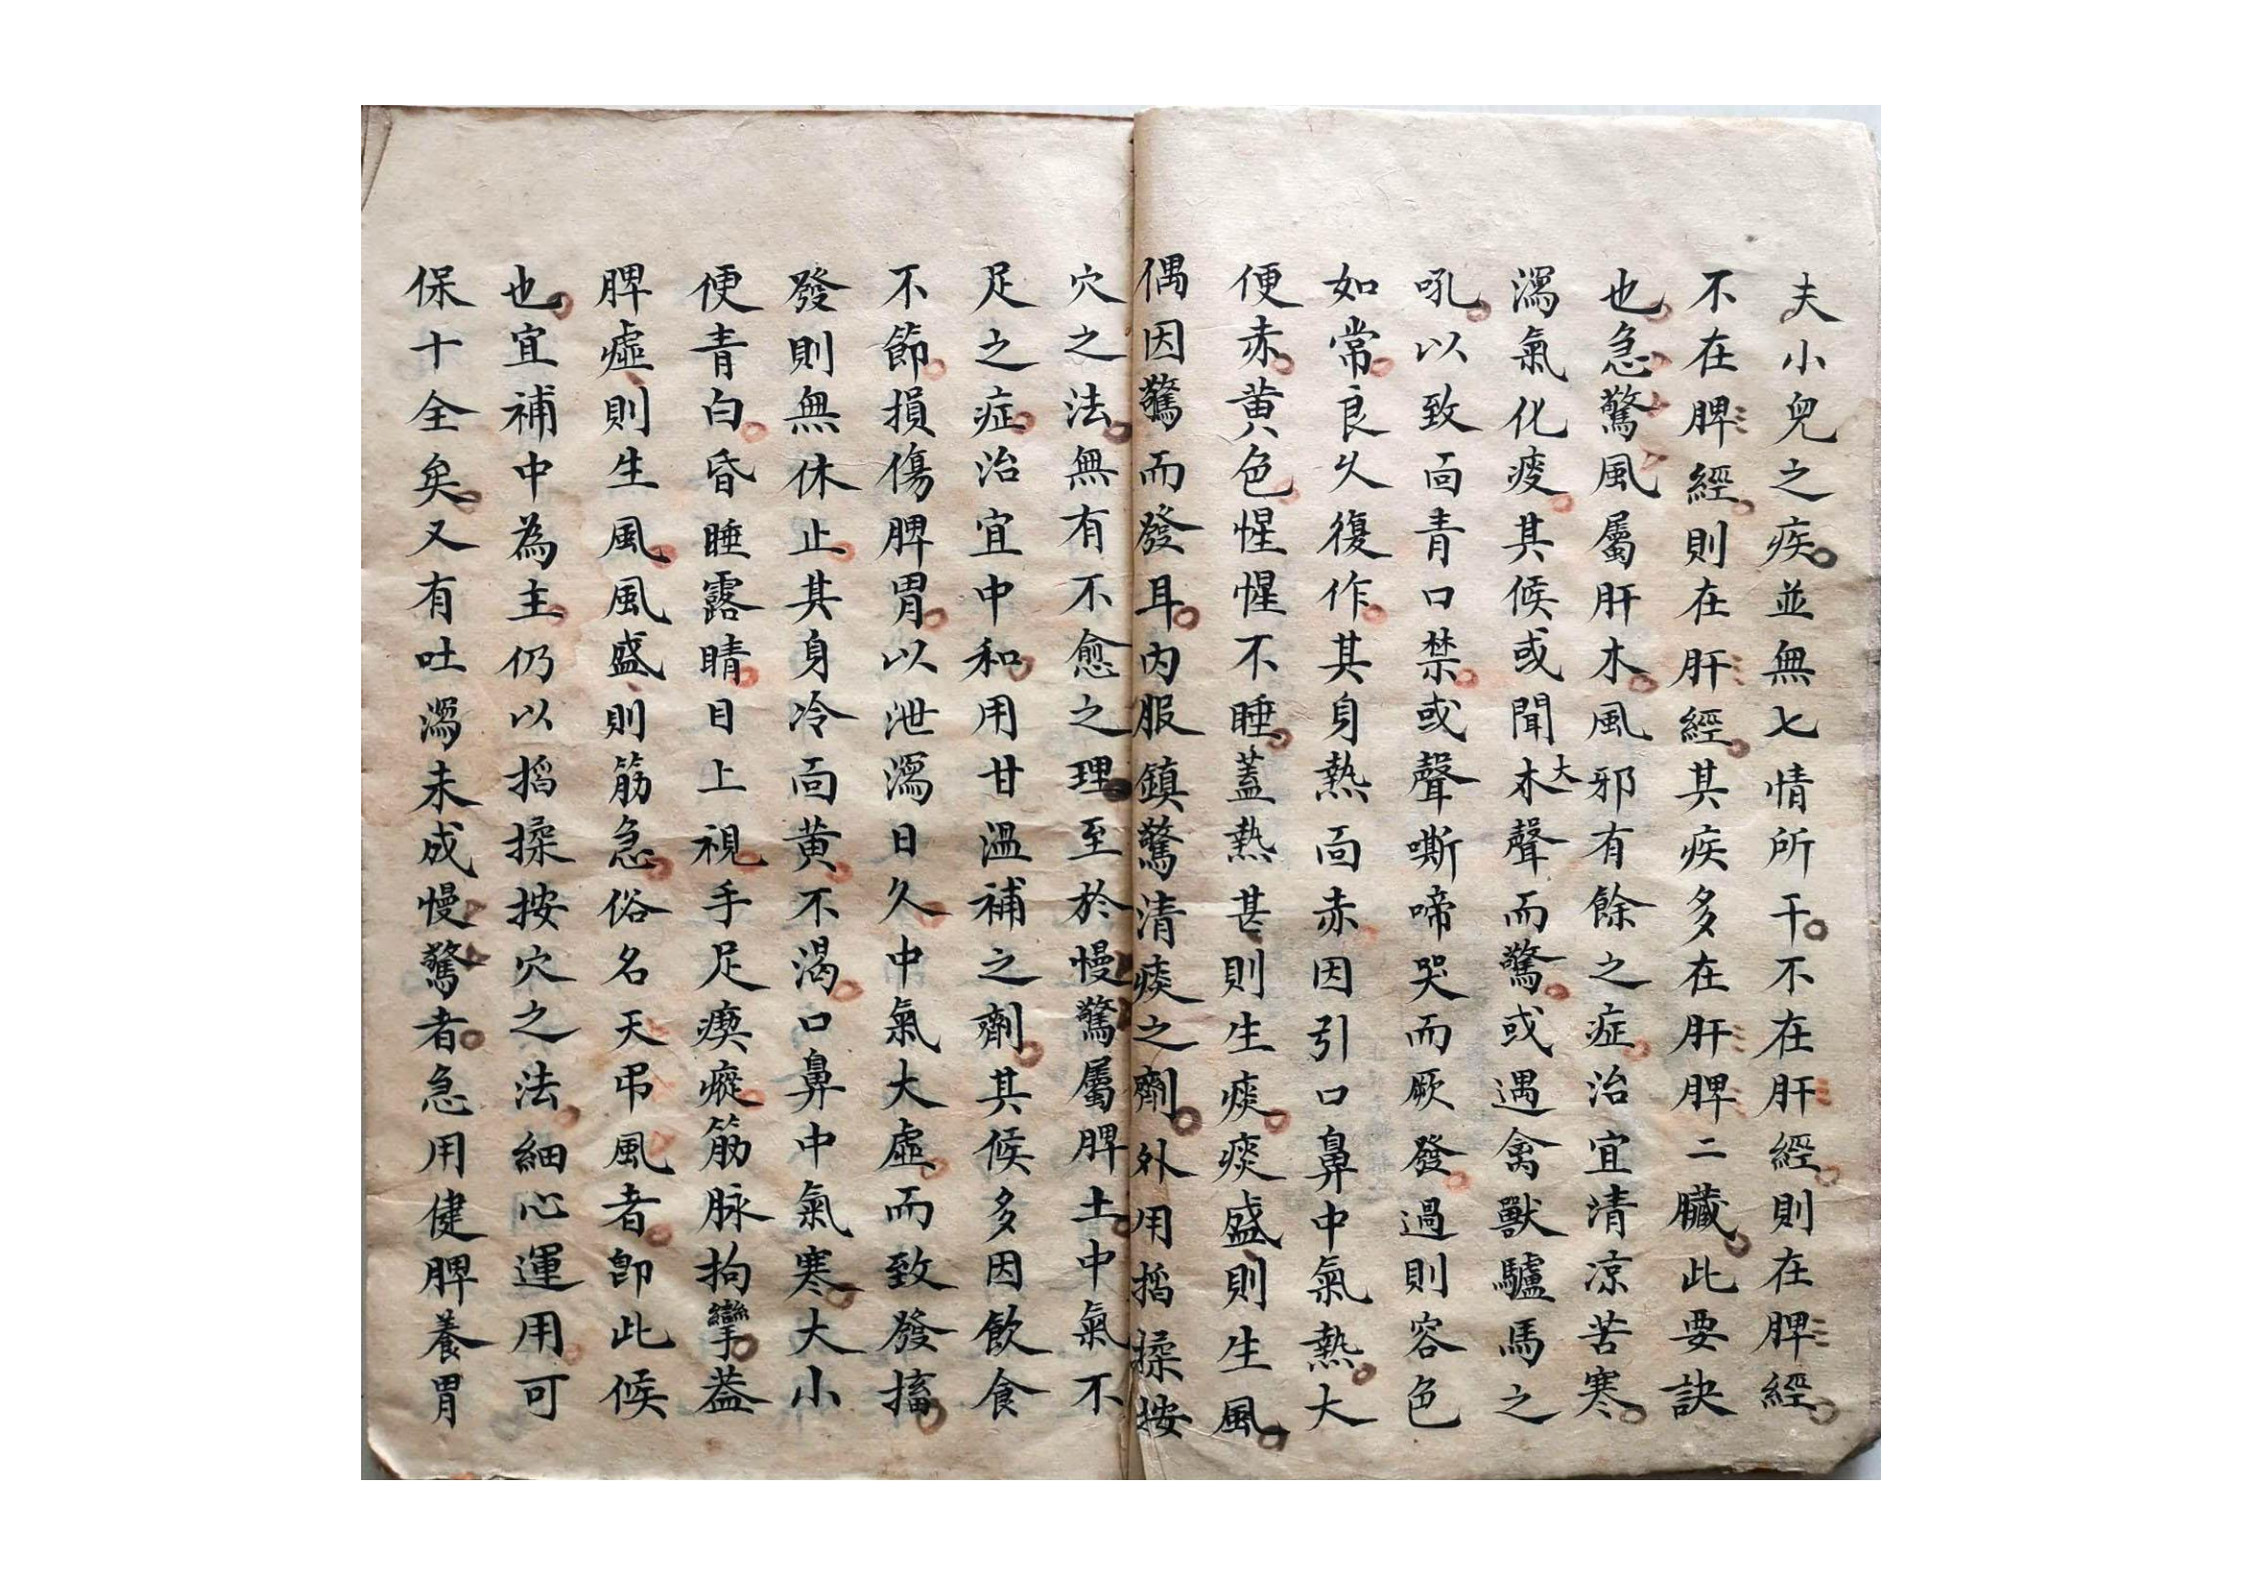 夫小兒之疾並無七情所干不在肝經則在脾經
不在脾經則在肝經其疾多在肝脾二臟此要訣
也急驚風屬肝木風邪有餘之症治宜清凉苦寒
瀉氣化痰其候或聞木大聲而驚或遇禽獸驢馬之
吼以致面青口禁或聲嘶啼哭而厥發過則容色
如常良久復作其身熱面赤因引口鼻中氣熱大
便赤黄色惺惺不睡蓋熱甚則生痰痰盛則生風
偶因驚而發耳内服鎮驚清痰之劑外用搯揉按
穴之法無有不愈之理至於慢驚屬脾土中氣不
足之症治宜中和用甘温補之劑其候多因飲食
不節損傷脾胃以泄瀉日久中氣大虛而致發搐
發則無休止其身冷面黄不渴口鼻中氣寒大小
便青白昏睡露睛目上視手足瘈瘲筋脉拘攣蓋
脾虛則生風風盛則筋急俗名天弔風者即此候
也宜補中為主仍以搯揉按穴之法細心運用可
保十全矣又有吐瀉未成慢驚者急用健脾養胃